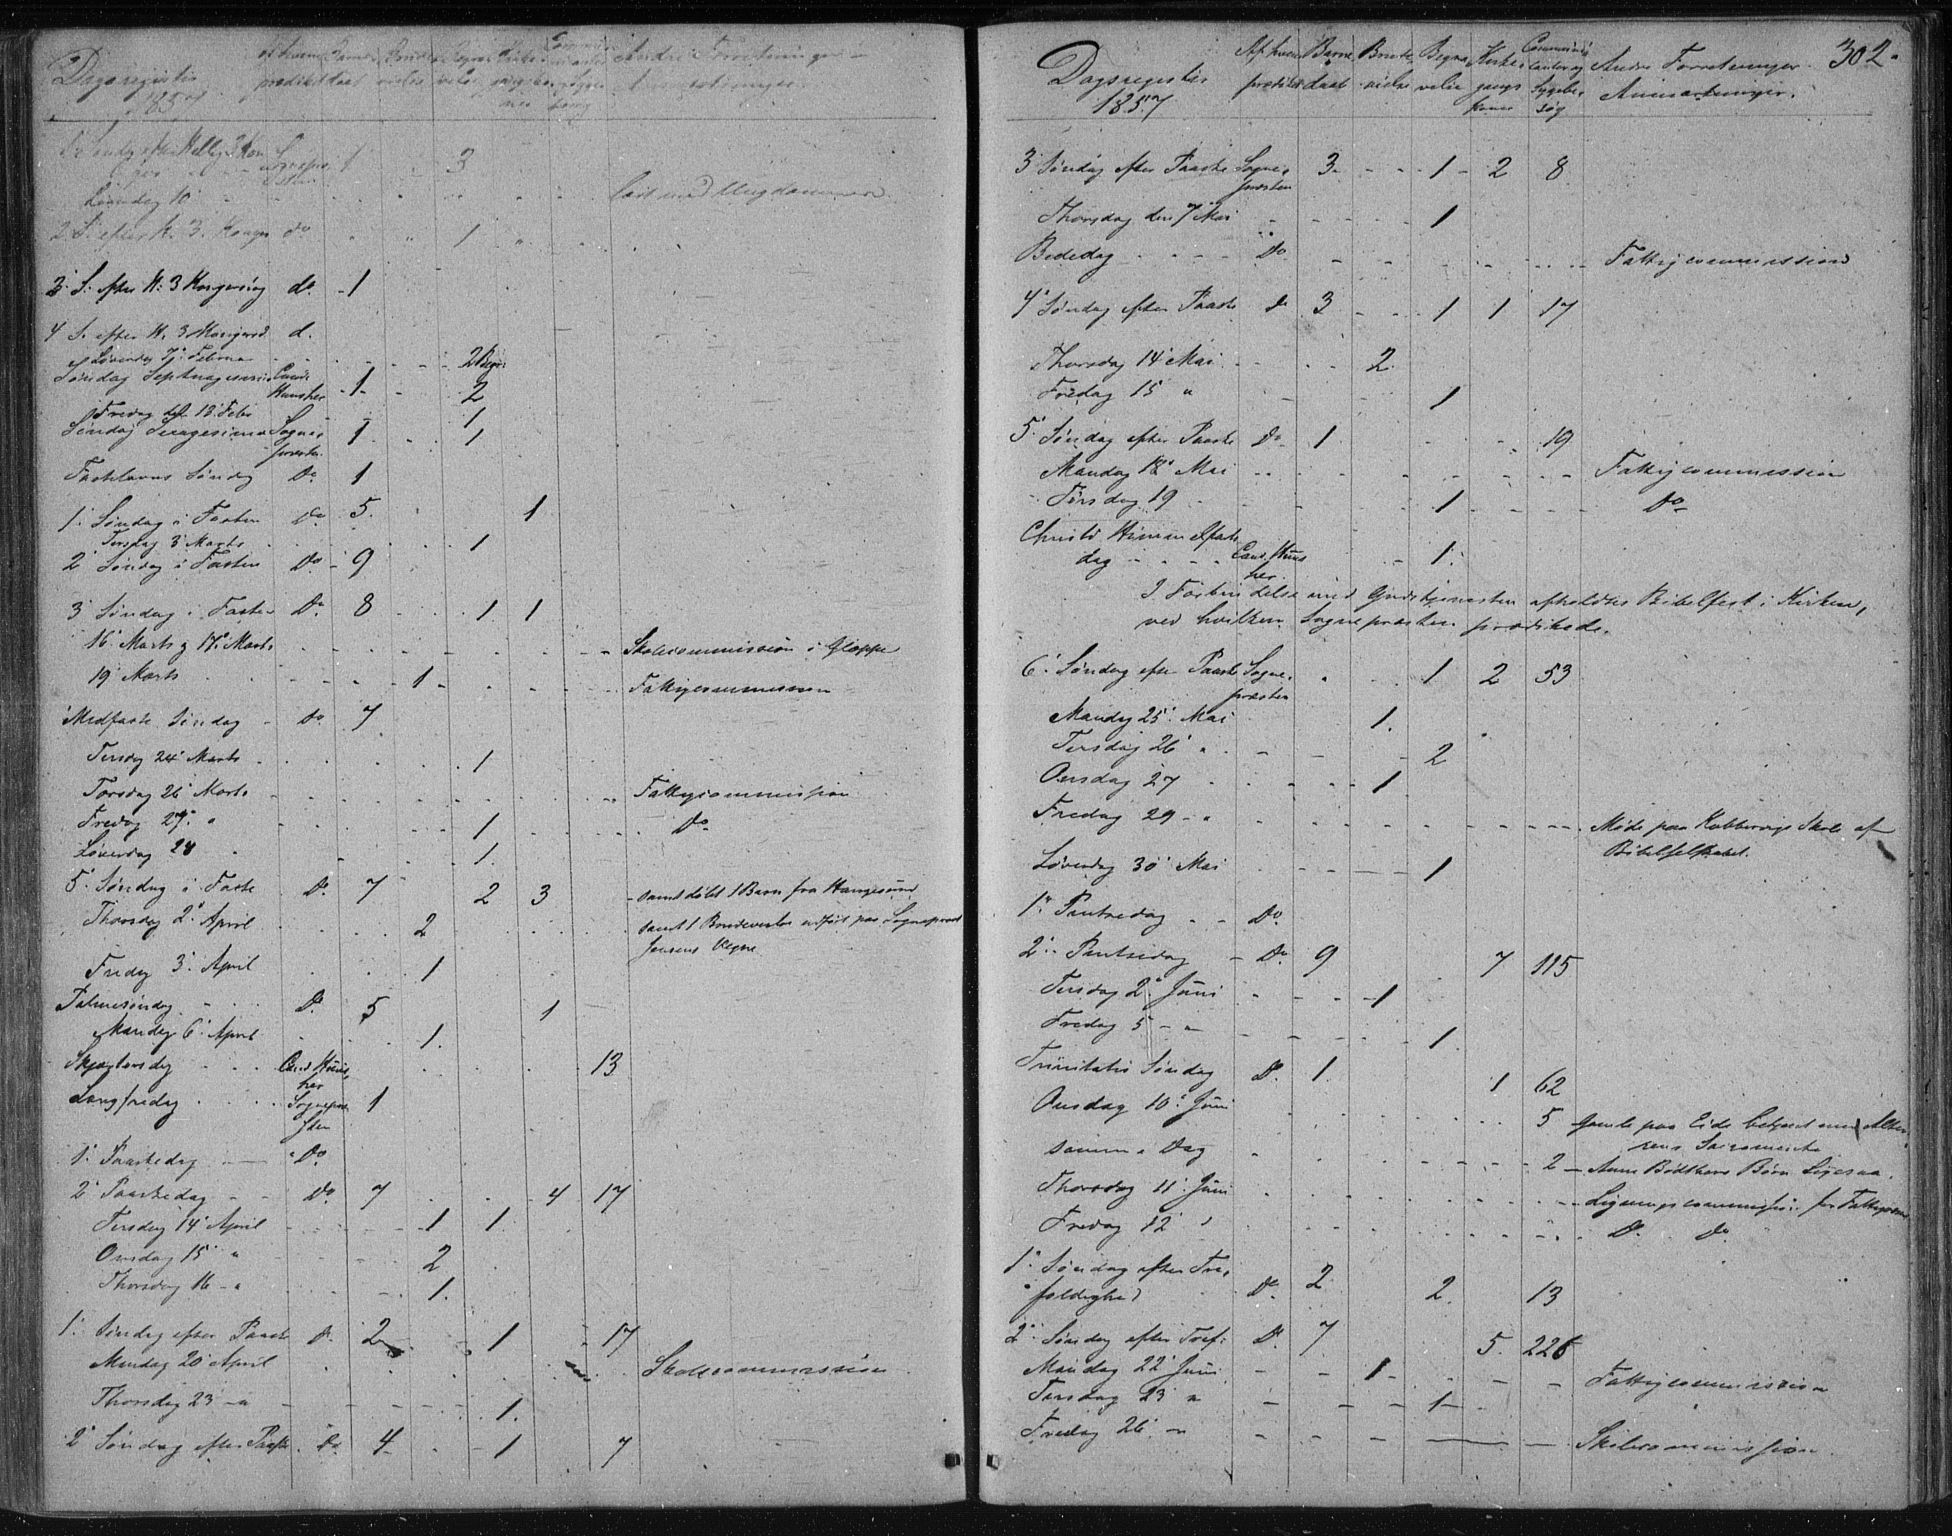 Dagsregister
1857
af hvem prædiket
Barne daab
Brude vielse
Begra velse
Andre Forretninger
Anmærkninger
1 Søndag efter Hellig 3 Kon Sognepræsten 1 3
Løverdag 10
2 S. efter H. 3 Konger do 1
3 S. efter H. 3 Kongersdag do. 1
4 S. efter H. 3 Kongersd d.
Løverdag 7 Februar 2 Begr.
Søndag Septuagesima Cand. Hunsher 1 2
Fredag d 13 Febr 1
Søndag Sexagesima Sognepræsten 1 1
Fastelavns Søndag Do 1
1. Søndag i Fasten Do 5. 1
Tirsdag 3 Marts 1
2 Søndag i Fasten Do 9
3 Søndag i Fasten Do 8 1 1
16 Marts og 17 Marts Skolecommission i
19 Marts 1 Fattigcommission
Midfaste Søndag Do 7
Tirsdag 24 Marts 1
Torsdag 26 Marts Fattigcommission
Fredag 27 " 1 Do
Løverdag 28 1.
5. Søndag i Faste Do 7 2 3 samt døbt 1 Barn fra Haugesund
Thorsdag 2 April 2 samt 1 Brudevielse udført paa Sognepræst
Jensens Vegne
Fredag 3. April 1
Palmesøndag Do 5 1
Mandag 6. April 1.
Skjærtorsdag Cand Hunsher 13
Langfredag Sognepræsten 1
1. Paaskedag Do
2 Paaskedag Do 7 4 17
Tirsdag 14 April 1 1
Onsdag 15 " 2
Thorsdag 16 " 1.
1. Søndag efter Paaske Do 2 1 17
Mandag 20 April Skolecommission
Thorsdag 23 " 1.
2 Søndag efter Paaske Do 4 1 7
302.
Dagsregister
1857
Af hvem prædiket
Barne daab
Brude vielse
Begra velse
Kirke gangs koner
Communicanter og Sygebesøg
Andre Forretninger
Anmærkninger.
3 Søndag efter Paaske Sognepræsten 3 1 2 8
Thorsdag den 7 Mai 1
Bededag Do Fattigcommission
4 Søndag efter Paaske do 3 1 1 17
Thorsdag 14 Mai 2.
Fredag 15 " 1
5. Søndag efter Paaske Do 1 19
Mandag 18 Mai Fattigcommission
Tirsdag 19 1 Do
Christi Himmelfarts
dag Cand. Hunsher 1.
I Forbindelse med Gudstjenesten afholdtes Bibelfest i Kirken,
ved hvilken Sognepræsten prædikede.
6. Søndag efter Paaske Sognepræsten 1 2 53
Mandag 25. Mai 1.
Tirsdag 26 " 2
Onsdag 27 1
Fredag 29 " Møde paa Skole af
Bibelselskabet.
Løverdag 30 Mai 1
1. Pintsedag Do
2. Pintsedag Do 9 7 115
Tirsdag 2. Juni 1
Fredag 5 " 1.
Trinitatis Søndag Do 1. 1 62
Onsdag 10. Juni 5 Gamle paa Eide betjent med Alterens Sacramente
samme Dag 2
Thorsdag 11 Juni Ligningscommission for Fattigvæsen
Fredag 12 " Do Do
1. Søndag efter Tre-
foldighed Do 2 2. 13
2. Søndag efter Tref: Do 7 5. 226
Mandag 22 Juni 1 Fattigcommission
Tirsdag 23 " 1
Fredag 26 " Skolecommission